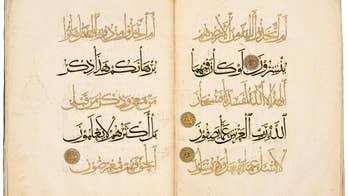 أم اتخذوا آلهة من الأرض هم
ينشرون لو كان فيهما
آلهة إلا الله لفسدتا فسبحان
الله رب العرش عما يصفون
لا يسأل عما يفعل وهم يسألون
أم اتخذوا من دونه آلهة قل هاتوا
برهانكم هذا ذكر
من معي وذكر من قبلي
بل أكثرهم لا يعلمون
الحق فهم معرضون